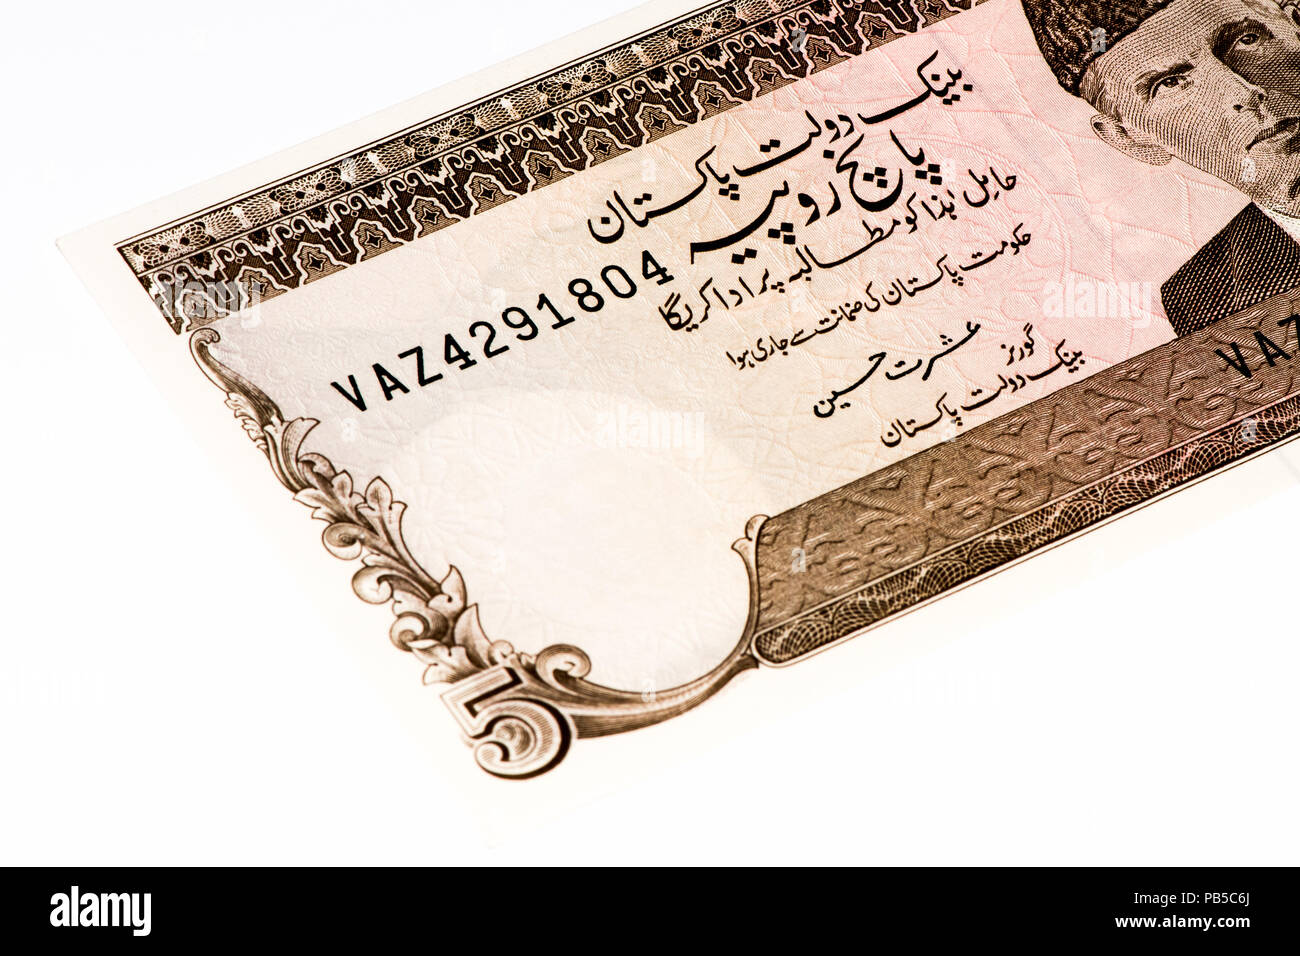 بینک دولت پاکستان
پانچ روپیہ
حامل ہٰذا کو مطالبہ پر ادا کریگا
حکومت پاکستان کی ضمانت سے جاری ہوا
عشرت حسین
گورنر
بینک دولت پاکستان
VAZ4291804
VAZ
5
alamy
alamy stock photo
PB5C6J
www.alamy.com